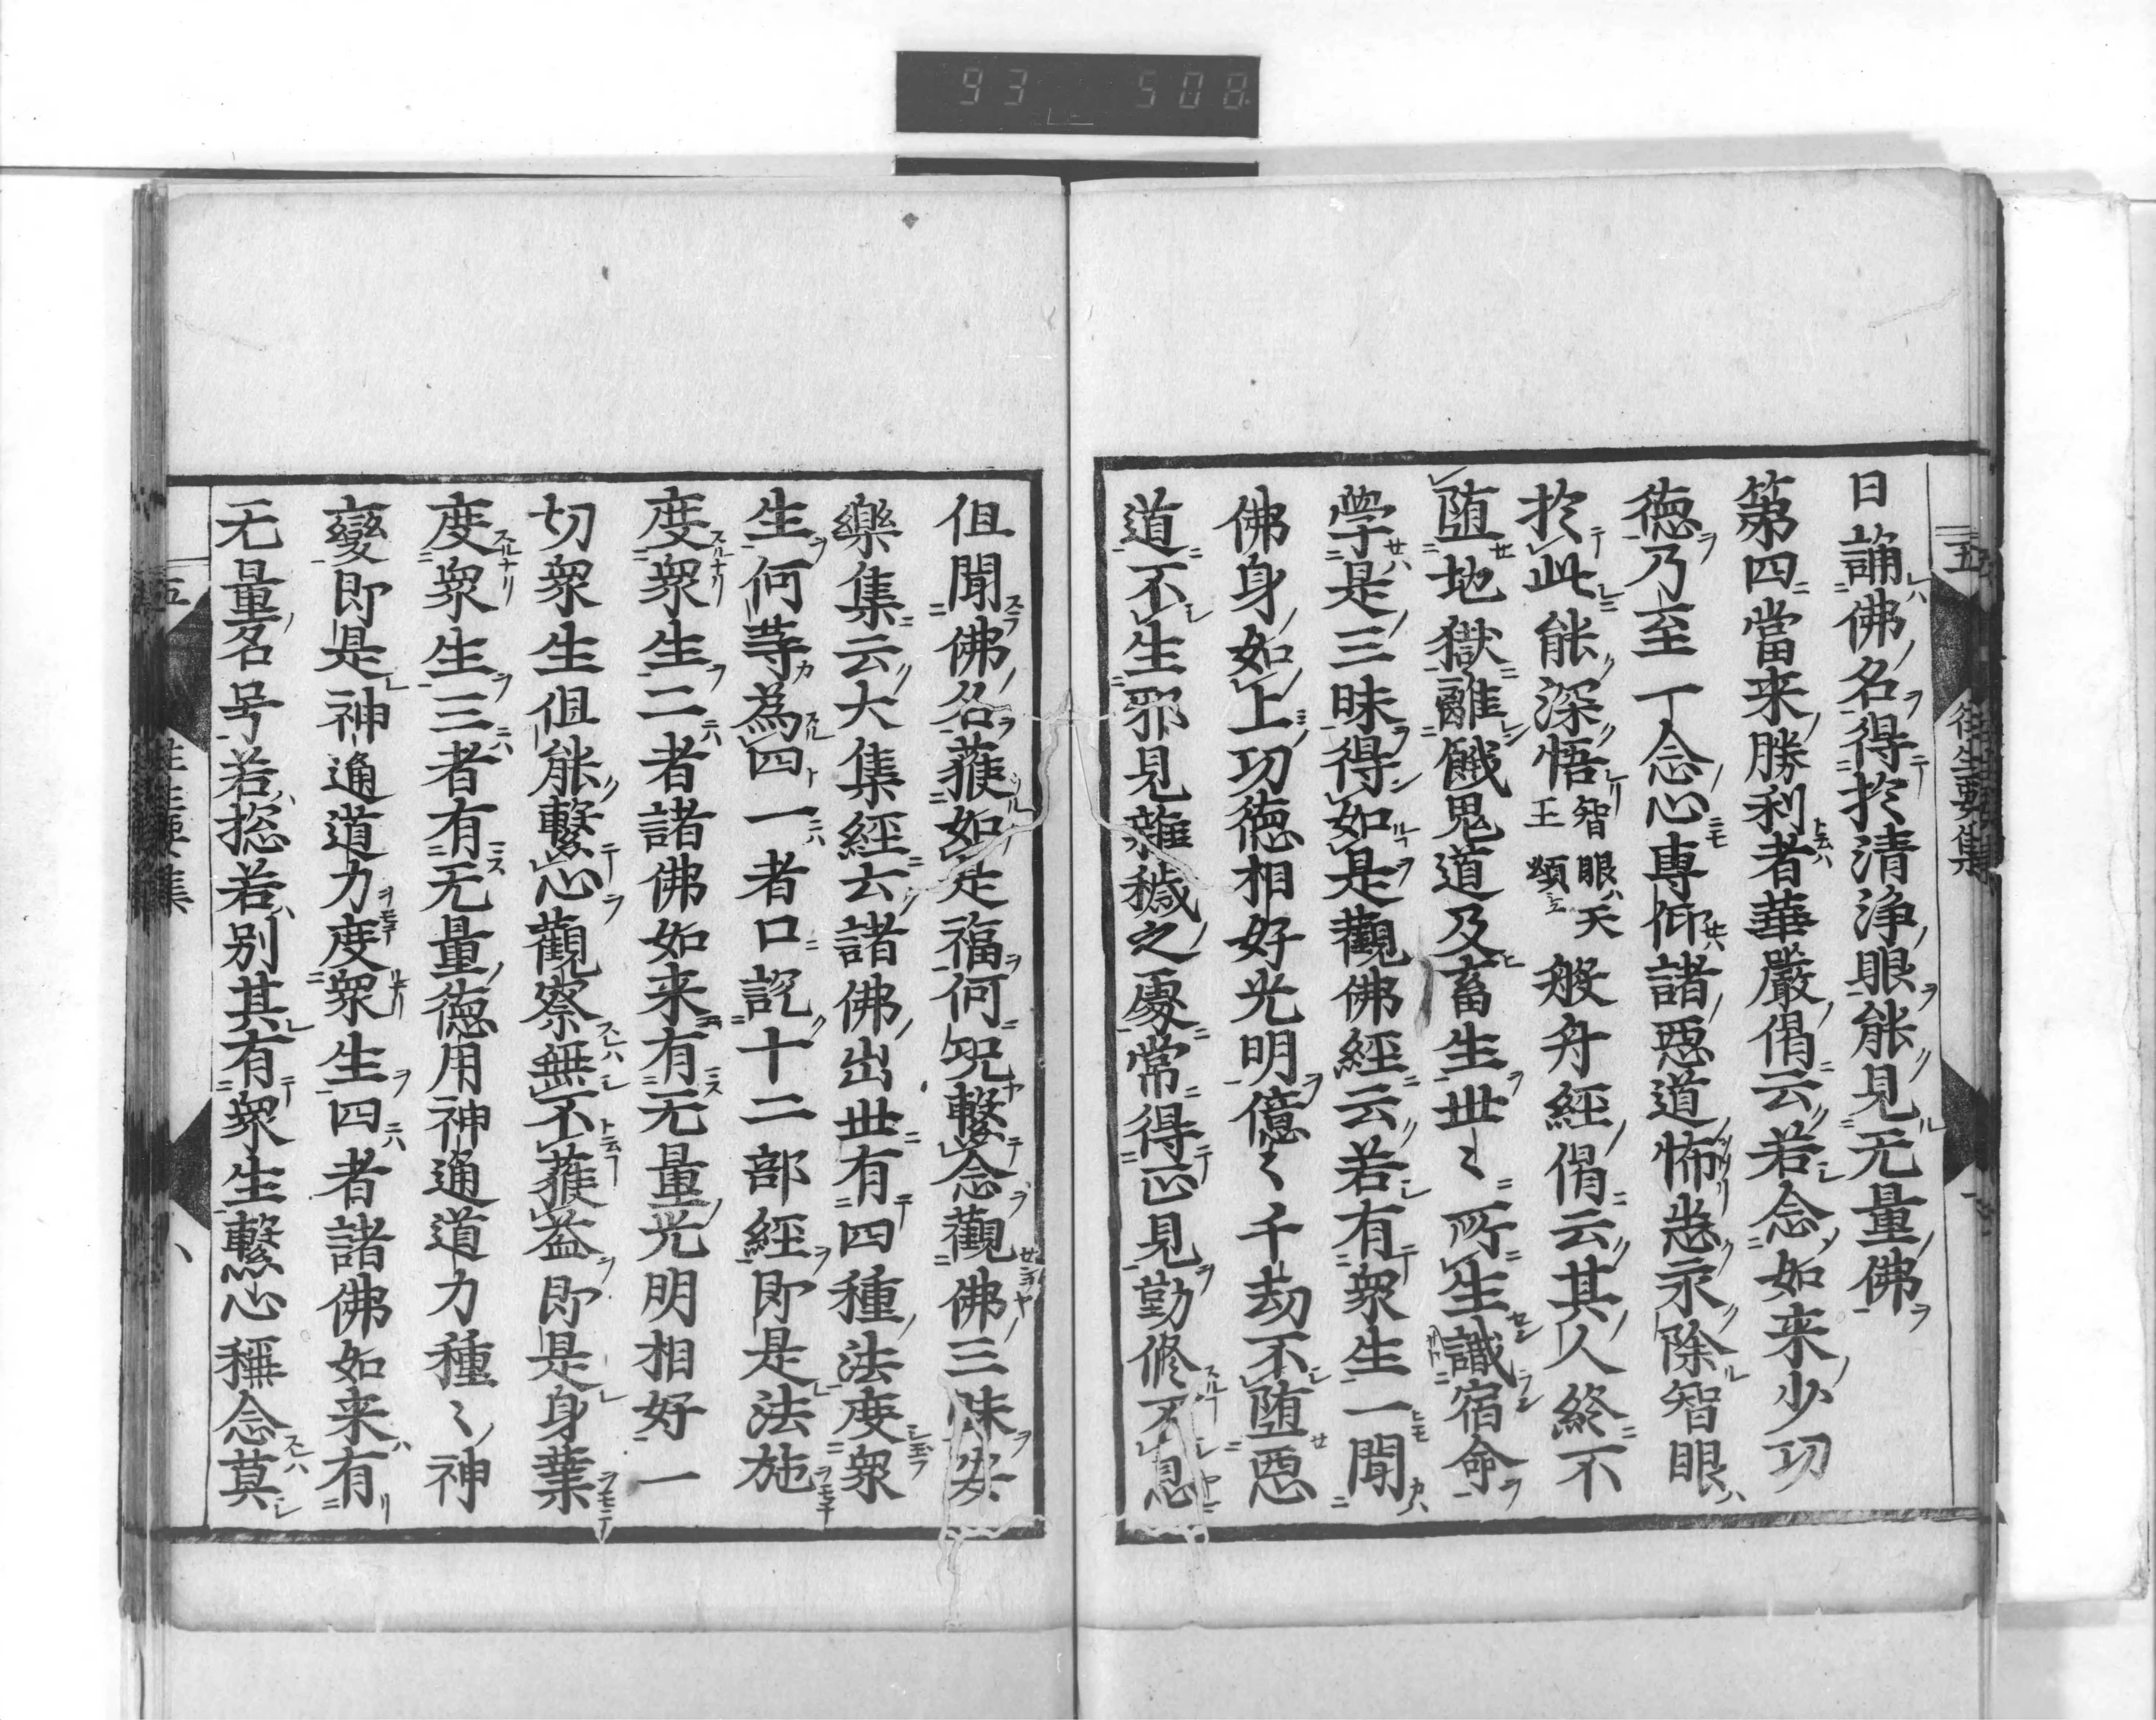 93 508
五 往生要集
日誦佛名得於清淨眼能見无量佛
第四當来勝利者華嚴偈云若念如来少功
徳乃至一念心專仰諸惡道怖悉永除智眼
於此能深悟 智眼天王頌 般舟經偈云其人終不
堕地獄離餓鬼道及畜生世〻所生識宿命
學是三昧得如是觀佛經云若有衆生一聞
佛身如上功徳相好光明億〻千劫不堕惡
道不生邪見雜穢之處常得正見勤修不息
但聞佛名獲如是福何况繫念觀佛三昧安
樂集云大集經云諸佛出世有四種法度衆
生何等為四一者口説十二部經即是法施
度衆生二者諸佛如来有无量光明相好一
切衆生但能繫心觀察無不獲益即是身業
度衆生三者有无量徳用神通道力種〻神
變即是神通道力度衆生四者諸佛如来有
无量名号若惣若別其有衆生繫心稱念莫
五 往生要集 八